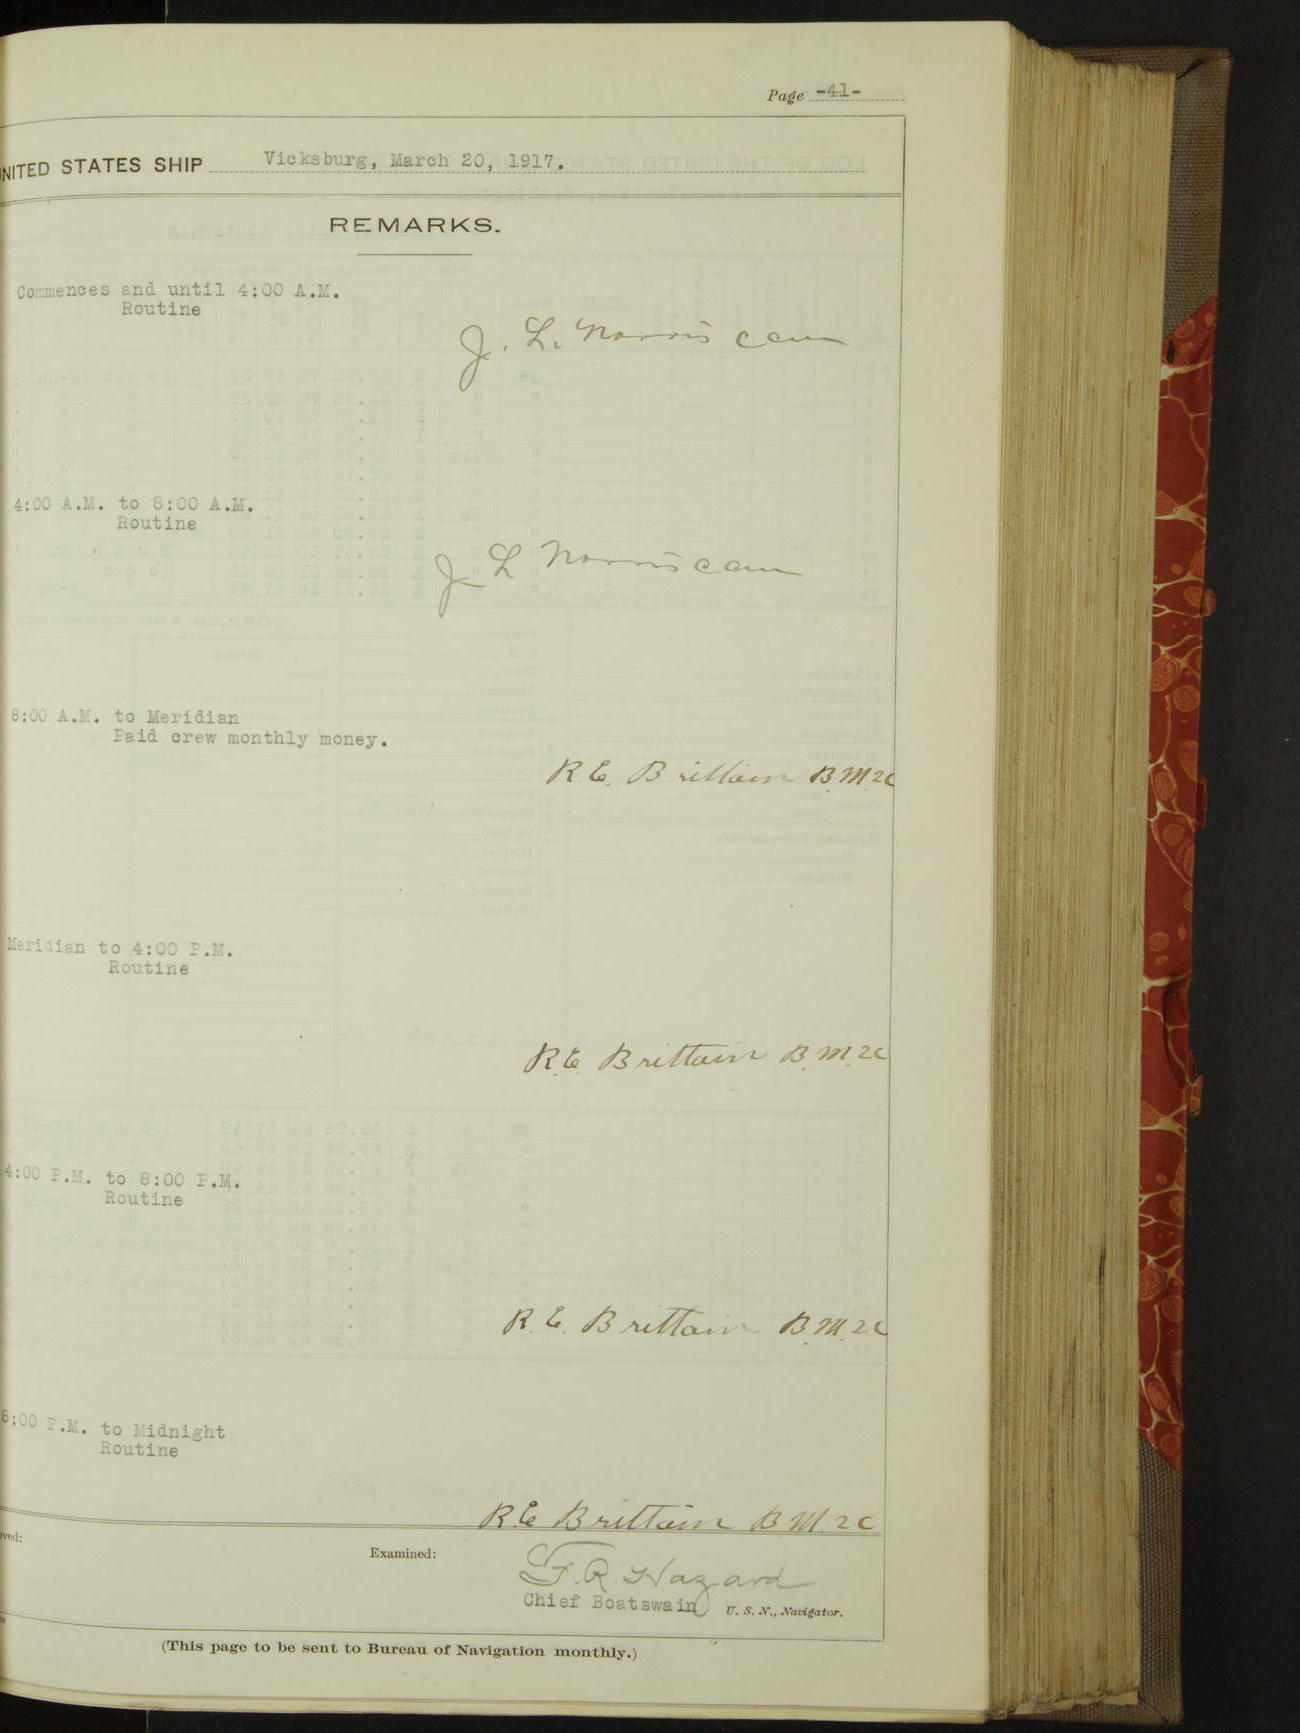 Page -41-
NITED STATES SHIP Vicksburg, March 20, 1917.
REMARKS.
Commences and until 4:00 A.M.
Routine
J. L. Norris
4:00 A.M. to 8:00 A.M.
Routine
J L Norris
8:00 A.M. to Meridian
Paid crew monthly money.
R.E. Brittain B.M.2C
Meridian to 4:00 P.M.
Routine
R.E. Brittain B.M.2C
4:00 P.M. to 8:00 P.M.
Routine
R.E. Brittain B.M.2C
8:00 P.M. to Midnight
Routine
R.E Brittain B.M.2C
oved:
Examined:
F.R. Hazard
Chief Boatswain U. S. N., Navigator.
(This page to be sent to Bureau of Navigation monthly.)